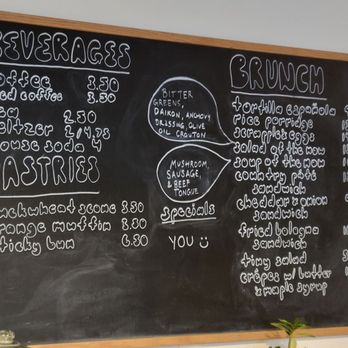 BEVERAGES
coffee 3.50
iced coffee 3.50
tea 2.50
seltzer 2/4.75
house soda 4
PASTRIES
buckwheat scone 3.50
orange muffin 3.00
sticky bun 6.50
BITTER
GREENS,
DAIKON, ANCHOVY
DRESSING, OLIVE
OIL CROUTON
MUSHROOM,
SAUSAGE,
& BEEF
TONGUE
specials
YOU
BRUNCH
tortilla española
rice porridge
scrapple & eggs
salad of the now
soup of the now
country pâté
sandwich
cheddar & onion
sandwich
fried bologna
sandwich
tiny salad
crêpes w/ butter
& maple syrup